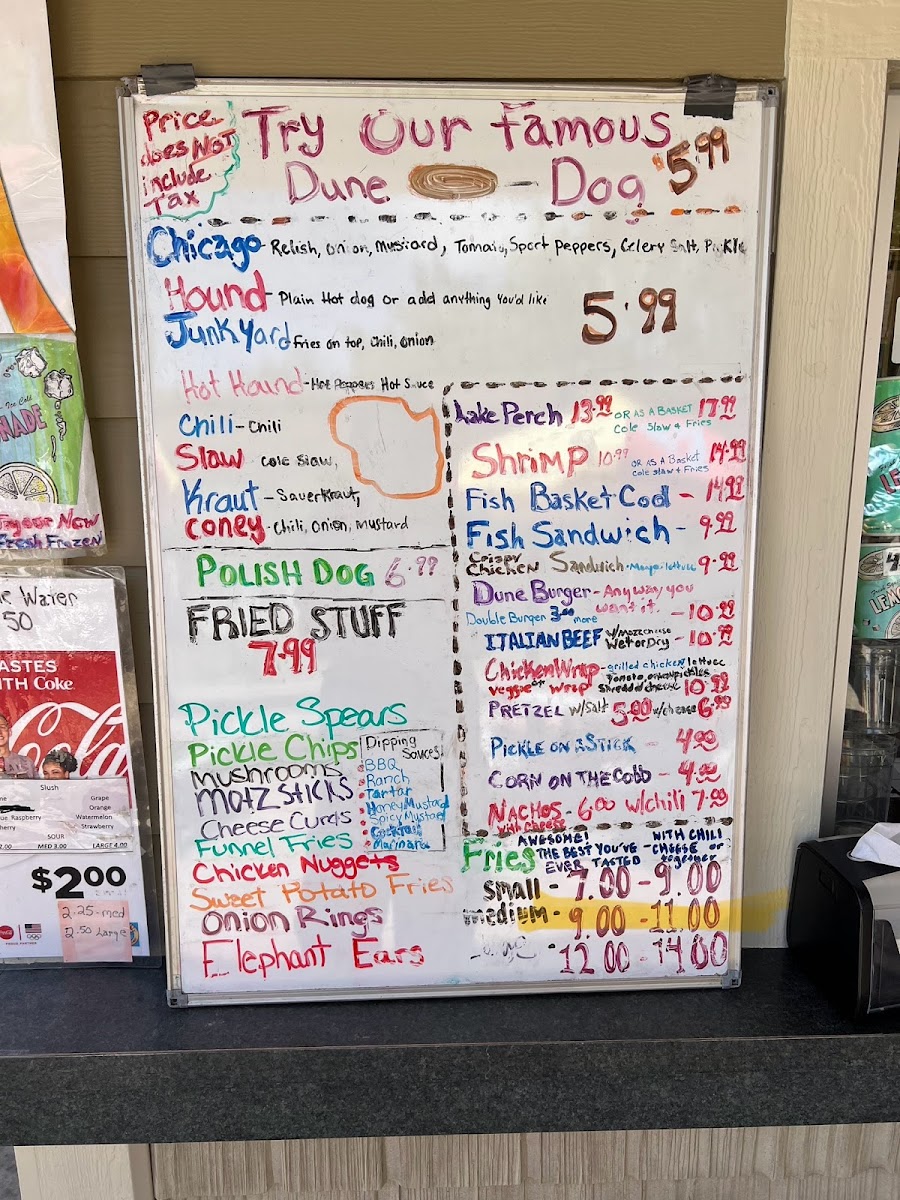 Price
does NOT
include
Tax
Try Our Famous
Dune Dog $5.99
Chicago - Relish, Onion, Mustard, Tomato, Sport Peppers, Celery Salt, Pickle
Hound - Plain Hot dog or add anything You'd like
5.99
Junkyard Fries on top, Chili, Onion
Hot Hound - Hot Peppers Hot Sauce
Chili - Chili
Slaw Cole Slaw,
Kraut - Sauerkraut,
Coney - Chili, Onion, Mustard
POLISH DOG 6.99
FRIED STUFF
7.99
Pickle Spears
Pickle Chips
Mushrooms
Motz Sticks
Cheese Curds
Funnel Fries
Chicken Nuggets
Sweet Potato Fries
Onion Rings
Elephant Ears
Dipping
Sauces
BBQ
Ranch
Tartar
Honey Mustard
Spicy Mustard
Cocktail
Marinara
Lake Perch 13.99 OR AS A BASKET 17.99
Cole Slaw & Fries
Shrimp 10.99 OR AS A Basket 14.99
Cole Slaw & Fries
Fish Basket Cod - 14.99
Fish Sandwich - 9.99
Crispy
Chicken Sandwich - Mayo - lettuce 9.99
Dune Burger - Any way you
want it.
Double Burger 3.00 more - 10.99
ITALIAN BEEF W/Mozz cheese
Wet or Dry - 10.99
Chicken Wrap - grilled chicken, lettuce
or
veggie wrap shredded cheese 10.99
PRETZEL w/Salt 5.00 w/cheese 6.99
PICKLE ON A STICK - 4.99
CORN ON THE COBB - 4.99
NACHOS 6.00 w/chili 7.99
with cheese
Fries AWESOME!
THE BEST YOU'VE
EVER TASTED
WITH CHILI
- CHEESE or
together
small - 7.00 - 9.00
medium - 9.00 - 11.00
12.00 - 14.00
50
TASTES
Coke
Slush
Grape
Orange
Raspberry Watermelon
Strawberry
SOUR
MED 3.00 LARGE 4.00
$2.00
2.25 - med
2.50 Large
Try our New
Fresh Frozen